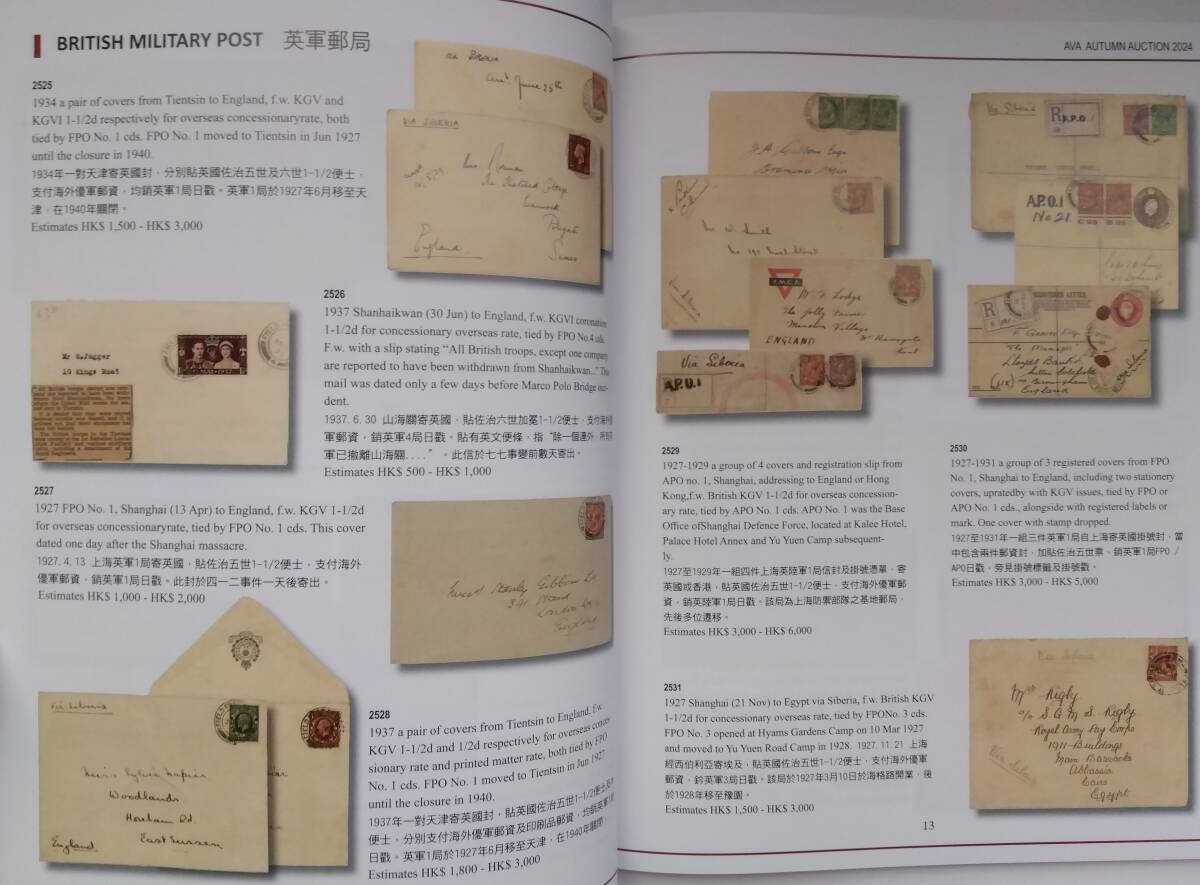 BRITISH MILITARY POST 英軍郵局
2525
1934 a pair of covers from Tientsin to England, f.w. KGV and
KGVI 1-1/2d respectively for overseas concessionaryrate, both
tied by FPO No. 1 cds. FPO No. 1 moved to Tientsin in Jun 1927
until the closure in 1940.
1934年一對天津寄英國封，分別貼英國佐治五世及六世1-1/2便士，
支付海外優軍郵資，均銷英軍1局日戳。英軍1局於1927年6月移至天
津，在1940年關閉。
Estimates HK$ 1,500 - HK$ 3,000
via SIBERIA
England
2526
1937 Shanhaikwan (30 Jun) to England, f.w. KGVI coronation
1-1/2d for concessionary overseas rate, tied by FPO No.4 cds.
F.w. with a slip stating “All British troops, except one company
are reported to have been withdrawn from Shanhaikwan...” This
mail was dated only a few days before Marco Polo Bridge
dent.
1937. 6. 30 山海關寄英國，貼佐治六世加冕1-1/2便士，支付海外
軍郵資，銷英軍4局日戳。貼有英文便條，指“除一個連外，所有
軍已撤離山海關....”。此信於七七事變前數天寄出。
Estimates HK$ 500 - HK$ 1,000
Mr S.Jagger
10 Kings Road
2527
1927 FPO No. 1, Shanghai (13 Apr) to England, f.w. KGV 1-1/2d
for overseas concessionaryrate, tied by FPO No. 1 cds. This cover
dated one day after the Shanghai massacre.
1927. 4.13 上海英軍1局寄英國，貼佐治五世1-1/2便士，支付海外
優軍郵資，銷英軍1局日戳。此封於四一二事件一天後寄出。
Estimates HK$ 1,000 - HK$ 2,000
Via Siberia
Miss Sylvia Napier
Woodlands
Horeham Rd
East Sussex
England
2528
1937 a pair of covers from Tientsin to England, f.w.
KGV 1-1/2d and 1/2d respectively for overseas conces-
sionary rate and printed matter rate, both tied by FPO
No. 1 cds. FPO No. 1 moved to Tientsin in Jun 1927
until the closure in 1940.
1937年一對天津寄英國封，貼英國佐治五世1-1/2便士及
便士，分別支付海外優軍郵資及印刷品郵資，均銷英軍1局
日戳。英軍1局於1927年6月移至天津，在1940年關閉。
Estimates HK$ 1,800 - HK$ 3,000
AVA AUTUMN AUCTION 2024
Y.M.C.A.
Mr F. Lodge
The Jolly Farmer
Manston Village
Nr Ramsgate
Kent
ENGLAND
Via Siberia
A.P.O.1
2529
1927-1929 a group of 4 covers and registration slip from
APO no. 1, Shanghai, addressing to England or Hong
Kong,f.w. British KGV 1-1/2d for overseas concession-
ary rate, tied by APO No. 1 cds. APO No. 1 was the Base
Office ofShanghai Defence Force, located at Kalee Hotel,
Palace Hotel Annex and Yu Yuen Camp subsequent-
ly.
1927至1929年一組四件上海英陸軍1局信封及掛號憑單，寄
英國或香港，貼英國佐治五世1-1/2便士，支付海外優軍郵
資，銷英陸軍1局日戳。該局為上海防禦部隊之基地郵局，
先後多位遷移。
Estimates HK$ 3,000 - HK$ 6,000
Via Siberia
R A.P.O 1
A.P.O.1
No 21
REGISTERED LETTER.
The Manager
Lloyds Bank
Sutton Coldfield
Birmingham
England
2530
1927-1931 a group of 3 registered covers from FPO
no. 1, Shanghai to England, including two stationery
covers, upratedby with KGV issues, tied by FPO or
APO No. 1 cds., alongside with registered labels or
mark. One cover with stamp dropped.
1927至1931年一組三件英軍1局自上海寄英國掛號封，當
中包含兩件郵資封，加貼佐治五世票，銷英軍1局FPO /
APO日戳，旁見掛號標籤及掛號戳。
Estimates HK$ 3,000 - HK$ 5,000
2531
1927 Shanghai (21 Nov) to Egypt via Siberia, f.w. British KGV
1-1/2d for concessionary overseas rate, tied by FPONo. 3 cds.
FPO No. 3 opened at Hyams Gardens Camp on 10 Mar 1927
and moved to Yu Yuen Road Camp in 1928. 1927. 11. 21 上海
經西伯利亞寄埃及，貼英國佐治五世1-1/2便士，支付海外優軍郵
資，鈐英軍3局日戳。該局於1927年3月10日於海格路開業，後
於1928年移至豫園。
Estimates HK$ 1,500 - HK$ 3,000
Via Siberia
Mrs Rigby
c/o S.Q.M.S. Rigby
Royal Army Pay Corps
1911 Buildings
Main Barracks
Abbassia
Cairo
Egypt
Via Siberia
13